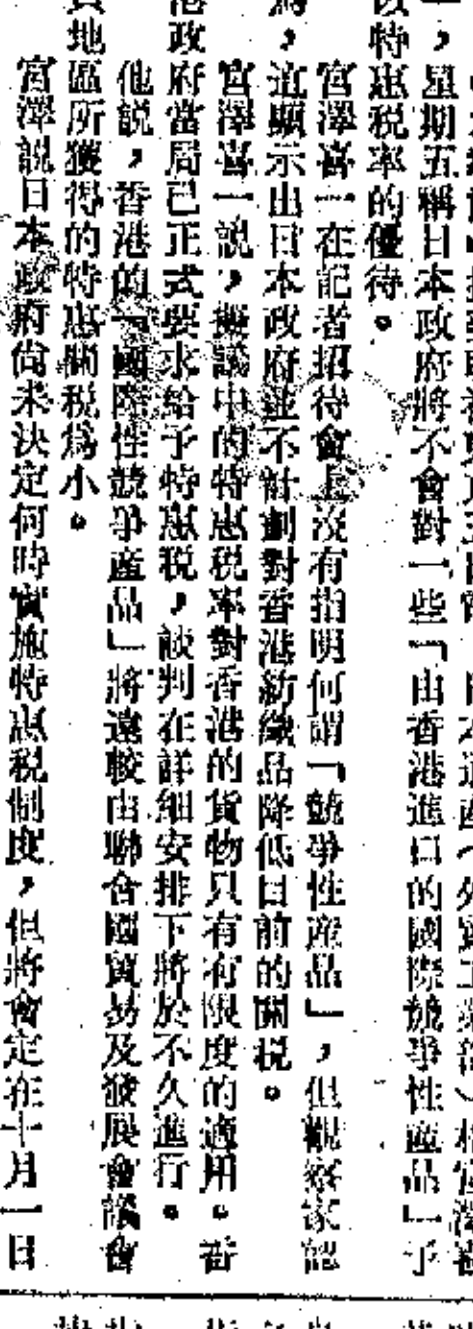 ，星期五稱日本政府將不會對一些「由香港進口的國際競爭性產品」予
特惠税率的優待。
宮澤喜一在記者招待會上沒有指明何謂「競爭性產品」，但觀察家認
，這顯示出日本政府並不計劃對香港紡織品降低目前的關税。
宮澤喜一説，擬議中的特惠税率對香港的貨物只有有限度的適用。香
政府當局已正式要求給予特惠税，談判在詳細安排下將於不久進行。
他説，香港的「國際性競爭產品」將遠較由聯合國貿易及發展會議會
地區所獲得的特惠關税爲小。
宮澤説日本政府尚未決定何時實施特惠税制度，但將會定在十月一日